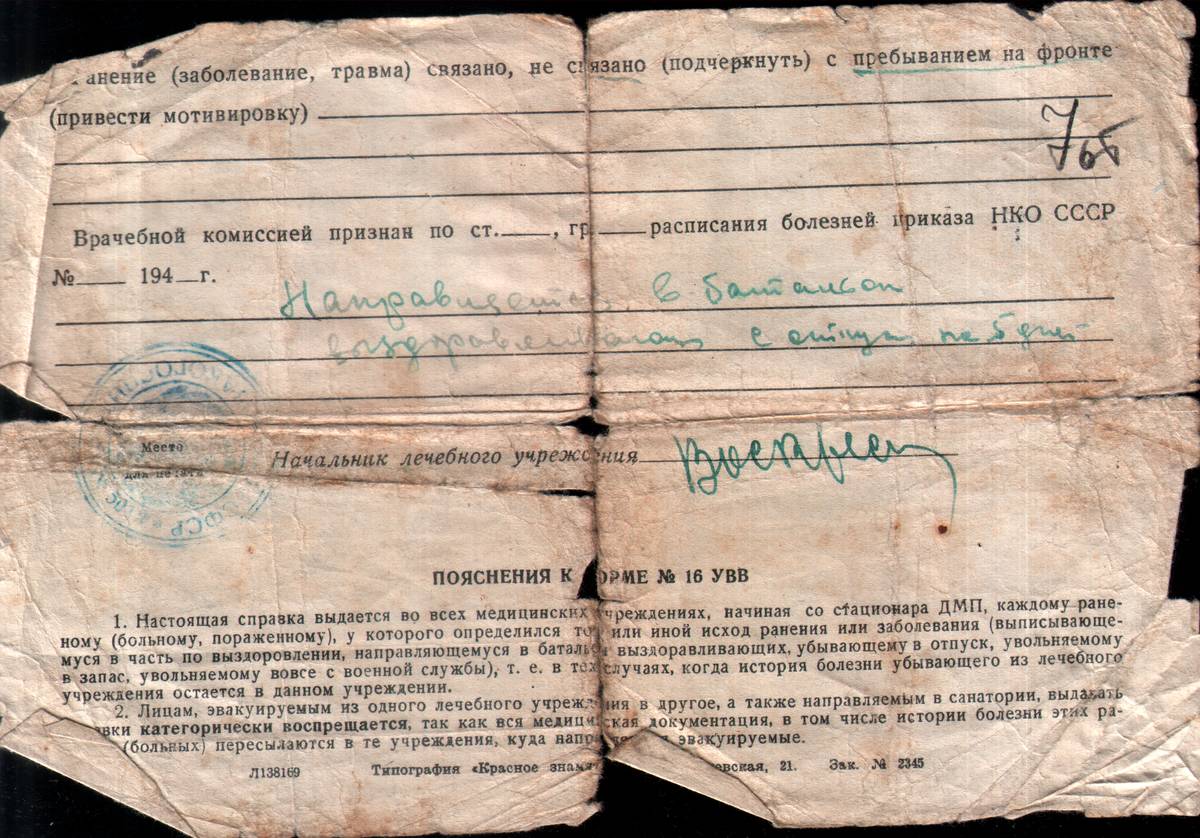 анение (заболевание, травма) связано, не связано (подчеркнуть) с пребыванием на фронте
(привести мотивировку)
Врачебной комиссией признан по ст. , гр. расписания болезней приказа НКО СССР
№ 194 г.
Направляется в батальон
выздоравливающих с отпуск на 5 дней
Место
для печати
Начальник лечебного учреждения
ПОЯСНЕНИЯ К ОРМЕ № 16 УВВ
1. Настоящая справка выдается во всех медицинских учреждениях, начиная со стационара ДМП, каждому ране-
ному (больному, пораженному), у которого определился то или иной исход ранения или заболевания (выписывающе-
муся в часть по выздоровлении, направляющемуся в батальо выздоравливающих, убывающему в отпуск, увольняемому
в запас, увольняемому вовсе с военной службы), т. е. в тех случаях, когда история болезни убывающего из лечебного
учреждения остается в данном учреждении.
2. Лицам, эвакуируемым из одного лечебного учреждения в другое, а также направляемым в санатории, выдавать
авки категорически воспрещается, так как вся медицинская документация, в том числе истории болезни этих ра-
(больных) пересылаются в те учреждения, куда напр эвакуируемые.
Л138169 Типография «Красное знам евская, 21. Зак. № 2345